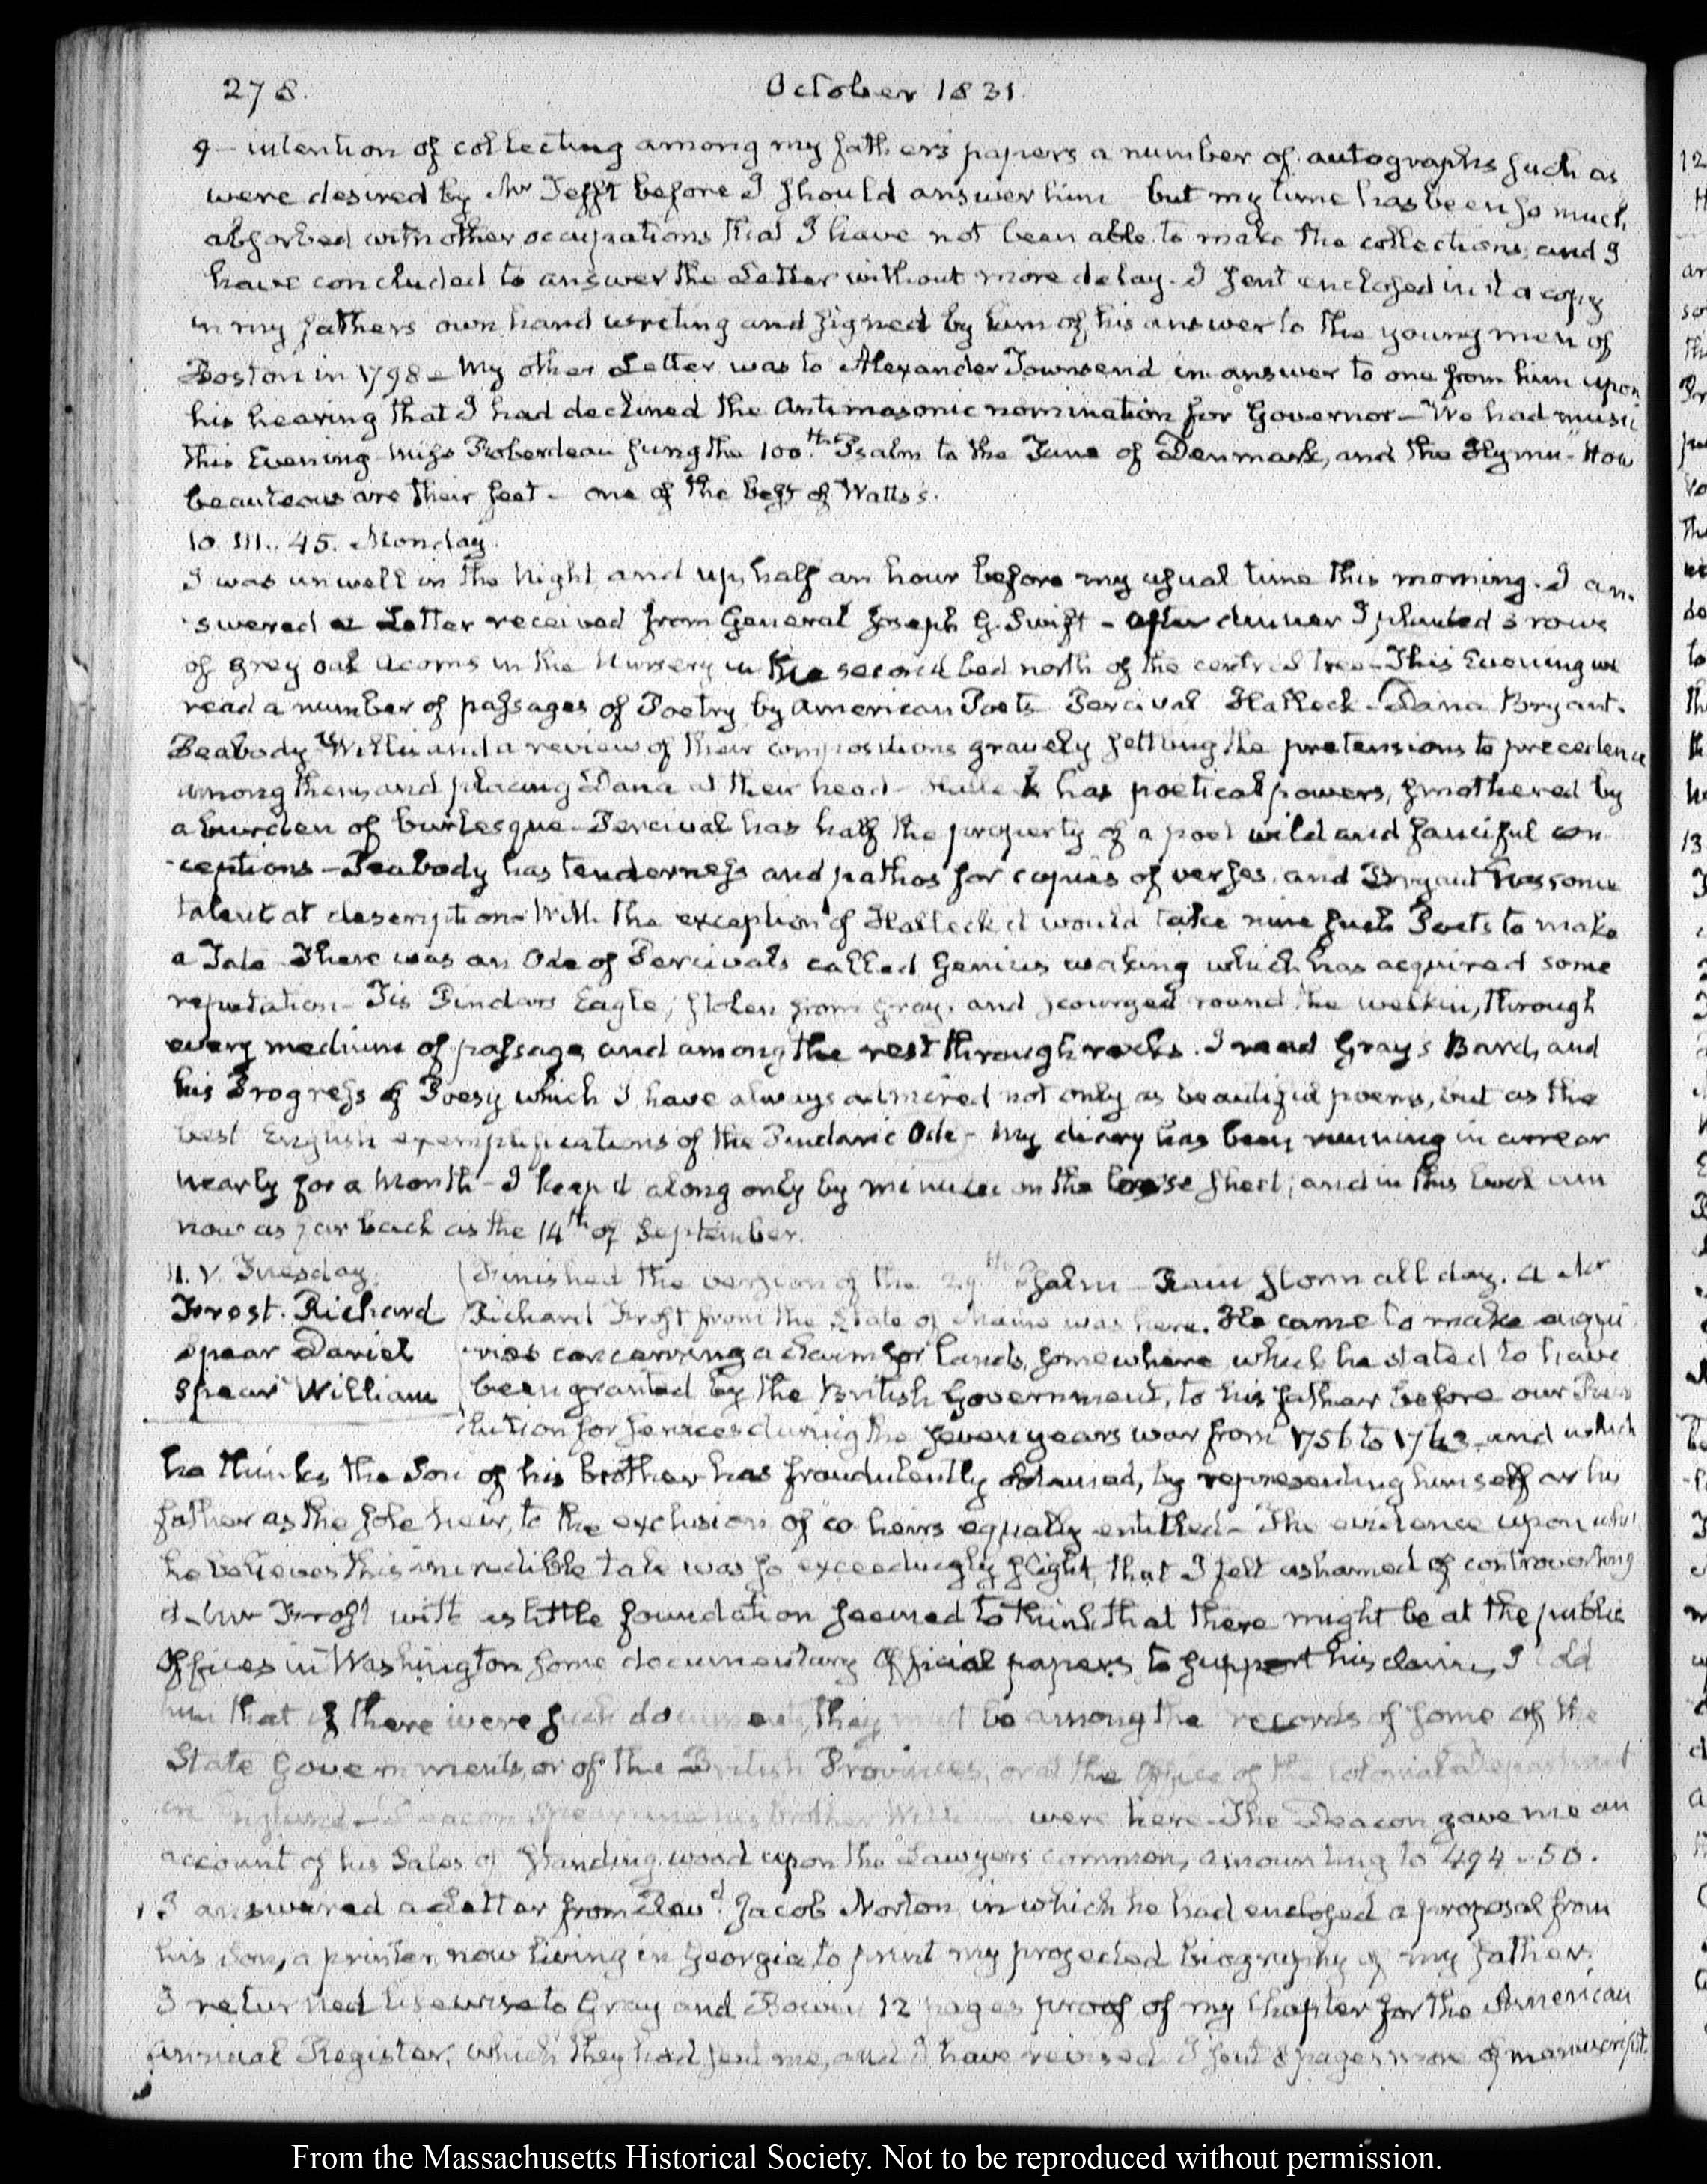 278.
October 1831.
9 — intention of collecting among my fathers papers a number of autographs such as
were desired by Mr Tefft before I should answer him but my time has been so much
absorbed with other occupations that I have not been able to make the collections, and I
have concluded to answer the Letter without more delay. I sent enclosed in it a copy
in my fathers own hand writing and signed by him of his answer to the young men of
Boston in 1798 — My other Letter was to Alexander Townsend in answer to one from him upon
his hearing that I had declined the Antimasonic nomination for Governor — We had music
this Evening Miss Roberdeau sung the 100.th Psalm to the Tune of Denmark, and the Hymn — How
beauteous are their feet — one of the best of Watts's.
10. III.. 45. Monday.
I was unwell in the Night, and up, half an hour before my usual time this morning. I an-
swered a Letter received from General Joseph G. Swift — After dinner I planted 3 rows
of grey oak acorns in the Nursery in the second bed north of the central tree — This Evening we
read a number of passages of Poetry by American Poets Percival Halleck — Dana Bryant.
Peabody Willis and a review of their compositions gravely settling the pretensions to precedence
among them, and placing Dana at their head — Halleck has poetical powers, smothered by
a burden of burlesque — Percival has half the property of a poet wild and fanciful con-
ceptions — Peabody has tenderness and pathos for copies of verses, and Bryant has some
talent at description — With the exception of Halleck it would take nine such Poets to make
a Tate — There was an Ode of Percivals called Genius waking which has acquired some
reputation — Tis Pindars Eagle, stolen from Gray, and scourged round the welkin, through
every medium of passage, and among the rest through rocks. I read Gray's Bard, and
his Progress of Poesy which I have always admired not only as beautiful poems, but as the
best English exemplifications of the Pindaric Ode — My diary has been running in arrear
nearly for a Month — I keep it along only by minutes on the loose sheet; and in this book am
now as far back as the 14th of September.
11. V. Tuesday.
Frost. Richard
Spear Daniel
Spear William
Finished the version of the 29th Psalm — Rain storm all day. A Mr
Richard Frost from the State of Maine was here. He came to make enqui-
ries concerning a claim for lands, somewhere which he stated to have
been granted by the British Government, to his father before our Revo-
lution for services during the seven years war from 1756 to 1763 and which
he thinks the Son of his brother has fraudulently obtained, by representing himself or his
father as the sole heir, to the exclusion of co heirs equally entitled — The evidence upon which
he believes this incredible tale was so exceedingly slight, that I felt ashamed of controverting
it — Mr Frost with as little foundation seemed to think that there might be at the public
Offices in Washington some documentary Official papers to support his claim, I told
him that if there were such documents, they must be among the records of some of the
State Governments, or of the British Provinces, or at the Office of the Colonial Department
in England — Deacon Spear and his brother William were here — The Deacon gave me an
account of his Sales of standing wood upon the Lawyers common, amounting to 494 - 50.
I answered a Letter from Revd. Jacob Norton, in which he had enclosed a proposal from
his Son, a printer, now living in Georgia, to print my projected biography of my father.
I returned likewise to Gray and Bowen 12 pages proof of my Chapter for the American
Annual Register, which they had sent me, and I have revised I sent 8 pages more of manuscript.
From the Massachusetts Historical Society. Not to be reproduced without permission.